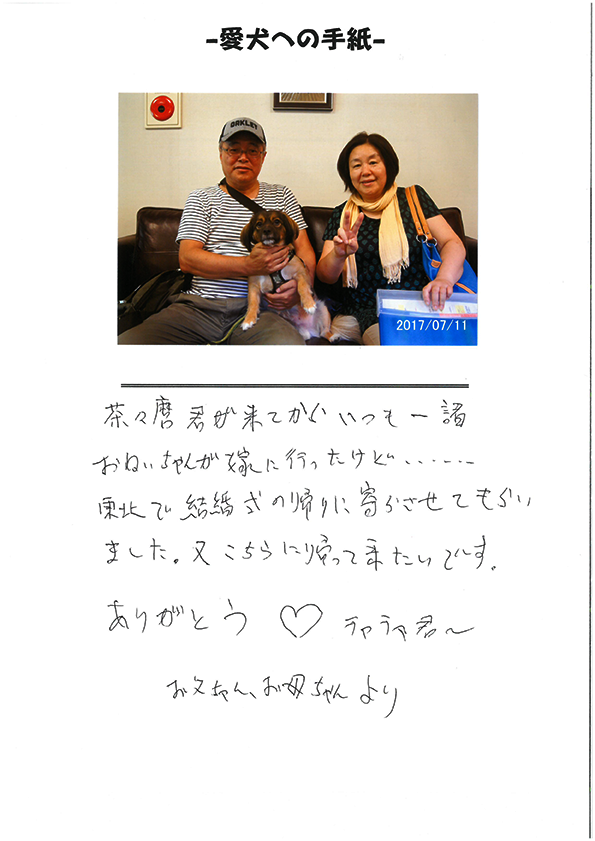 -愛犬への手紙-
OAKLEY
2017/07/11
茶々麿君が来てからいつも一諸
おねいちゃんが嫁に行ったけど・・・・・・
東北で結婚式の帰りに寄らさせてもらい
ました。又こちらに帰って来たいです。
ありがとう ♡ チャチャ君〜
お父ちゃん、お母ちゃんより